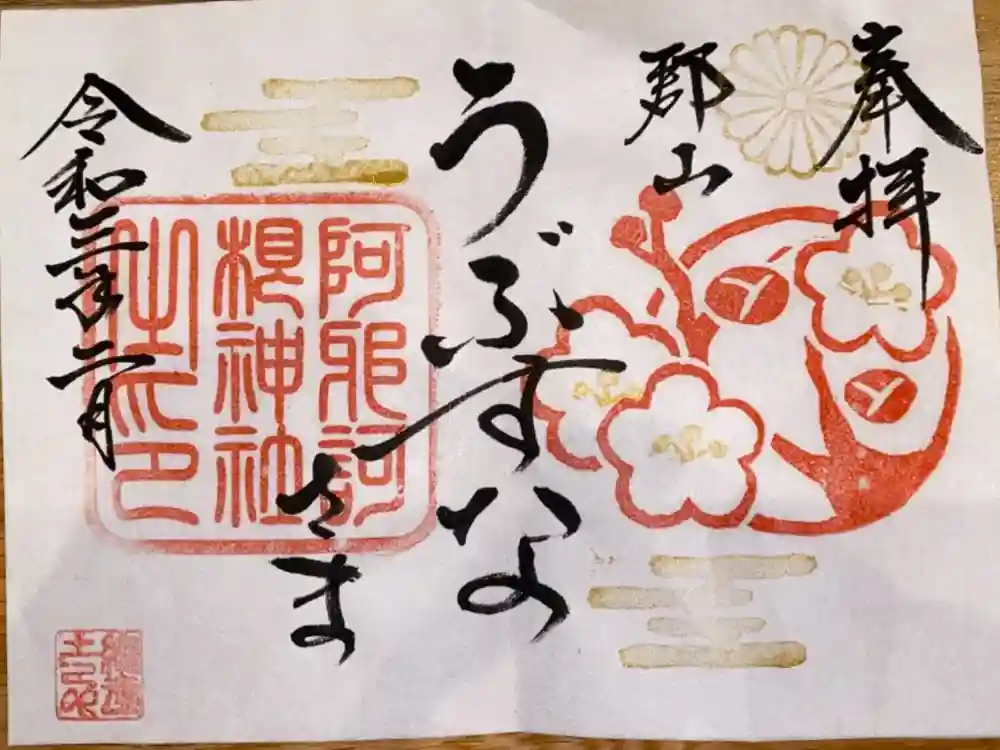 奉拝
郡山
うぶすな
さま
阿邪訶
根神社
之印
令和三年二月